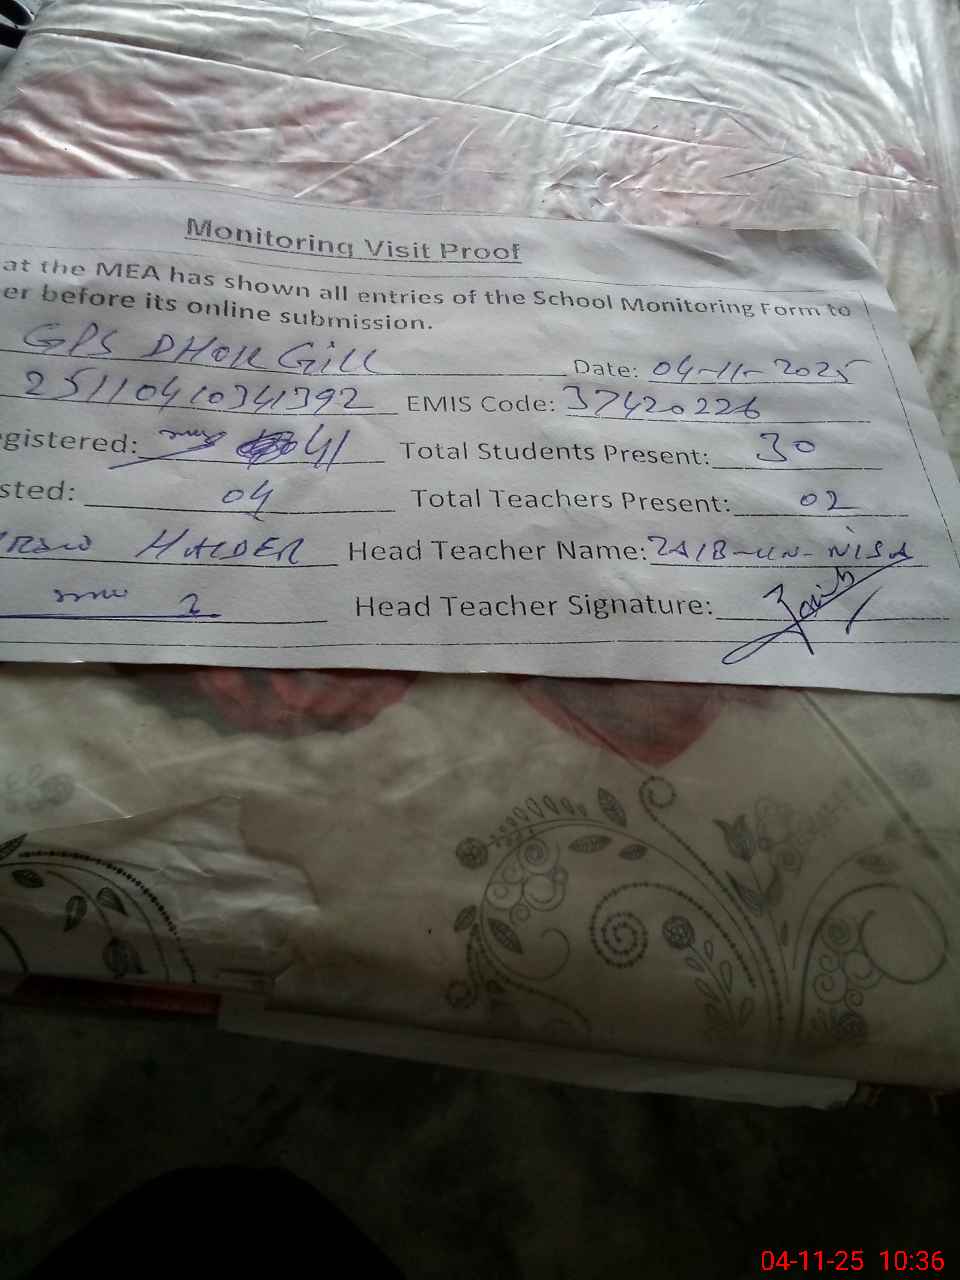 Monitoring Visit Proof
at the MEA has shown all entries of the School Monitoring Form to
er before its online submission.
GPS DHOK GILL Date: 04-11-2025
25110410341392 EMIS Code: 37420226
egistered: 41 Total Students Present: 30
sted: 04 Total Teachers Present: 02
HAIDER Head Teacher Name: ZAIB-UN-NISA
Head Teacher Signature: Zaib
04-11-25 10:36